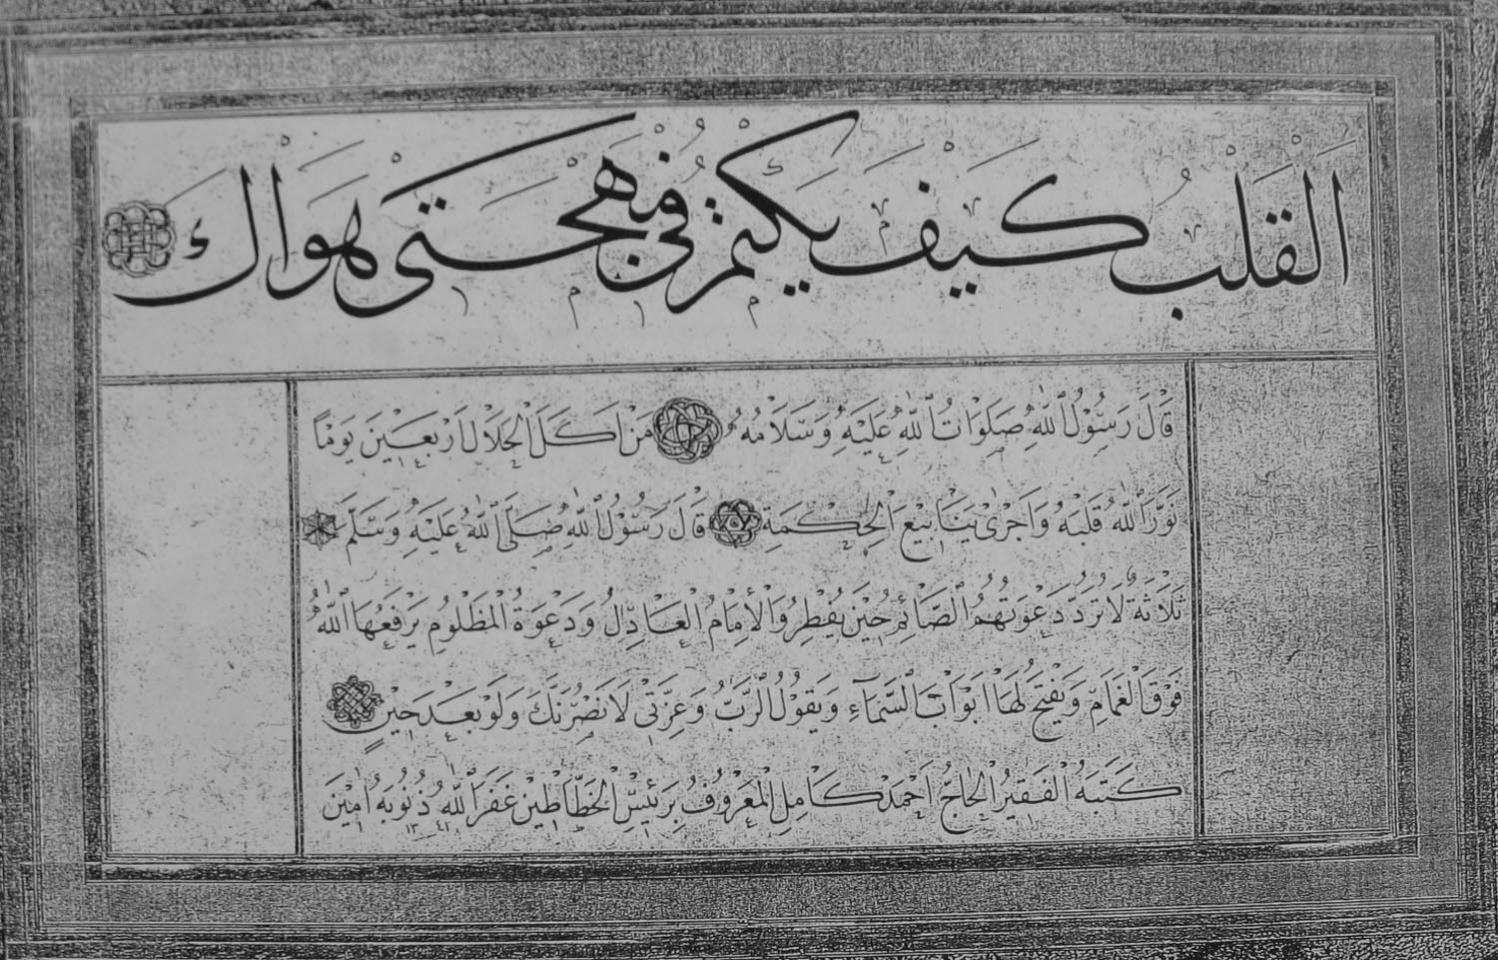 القلب كيف يكتم في مهجتي هواك
قَالَ رَسُوْلُ اللّٰهِ صَلَوَاتُ اللّٰهِ عَلَيْهِ وَسَلَامُهُ مَنْ اَكَلَ الْحَلَالَ اَرْبَعِيْنَ يَوْمًا
نَوَّرَ اللّٰهُ قَلْبَهُ وَاَجْرٰى يَنَابِيْعَ الْحِكْمَةِ قَالَ رَسُوْلُ اللّٰهِ صَلَّى اللّٰهُ عَلَيْهِ وَسَلَّمَ
ثَلَاثَةٌ لَا تُرَدُّ دَعْوَتُهُمُ الصَّائِمُ حِيْنَ يُفْطِرُ وَالْاِمَامُ الْعَادِلُ وَدَعْوَةُ الْمَظْلُوْمِ يَرْفَعُهَا اللّٰهُ
فَوْقَ الْغَمَامِ وَيَفْتَحُ لَهَا اَبْوَابَ السَّمَآءِ وَيَقُوْلُ الرَّبُّ وَعِزَّتِيْ لَاَنْصُرَنَّكَ وَلَوْ بَعْدَ حِيْنٍ
كَتَبَهُ الْفَقِيْرُ الْحَاجُّ اَحْمَدْ كَامِلِ الْمَعْرُوْفُ بِرَئِيْسِ الْخَطَّاطِيْنْ غَفَرَ اللّٰهُ ذُنُوْبَهُ اٰمِيْنَ